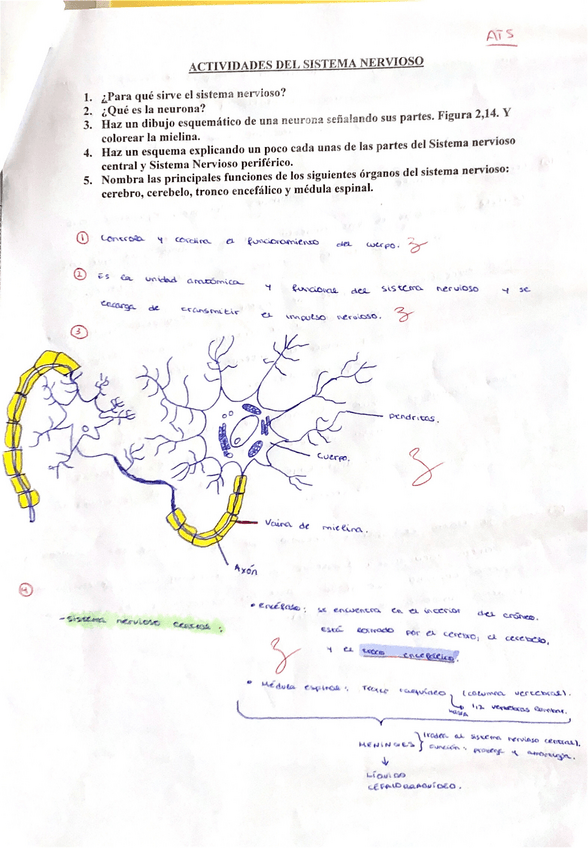 ATS
ACTIVIDADES DEL SISTEMA NERVIOSO
1. ¿Para qué sirve el sistema nervioso?
2. ¿Qué es la neurona?
3. Haz un dibujo esquemático de una neurona señalando sus partes. Figura 2,14. Y
colorear la mielina.
4. Haz un esquema explicando un poco cada unas de las partes del Sistema nervioso
central y Sistema Nervioso periférico.
5. Nombra las principales funciones de los siguientes órganos del sistema nervioso:
cerebro, cerebelo, tronco encefálico y médula espinal.
1 Controla y coordina el funcionamiento del cuerpo.
2 Es la unidad anatómica y funcional del sistema nervioso y se
encarga de transmitir el impulso nervioso.
3
Dendritas.
Cuerpo.
Vaina de mielina.
Axón
4
• encéfalo: se encuentra en el interior del cráneo.
-sistema nervioso central:
está formado por el cerebro, el cerebelo,
y el tronco encefálico.
• Médula espinal: raquídeo (columna vertebral).
hasta 1,2 vertebras lumbar.
(rodea al sistema nervioso central).
MENINGES función: protege y
LÍQUIDO
CEFALORRAQUÍDEO.